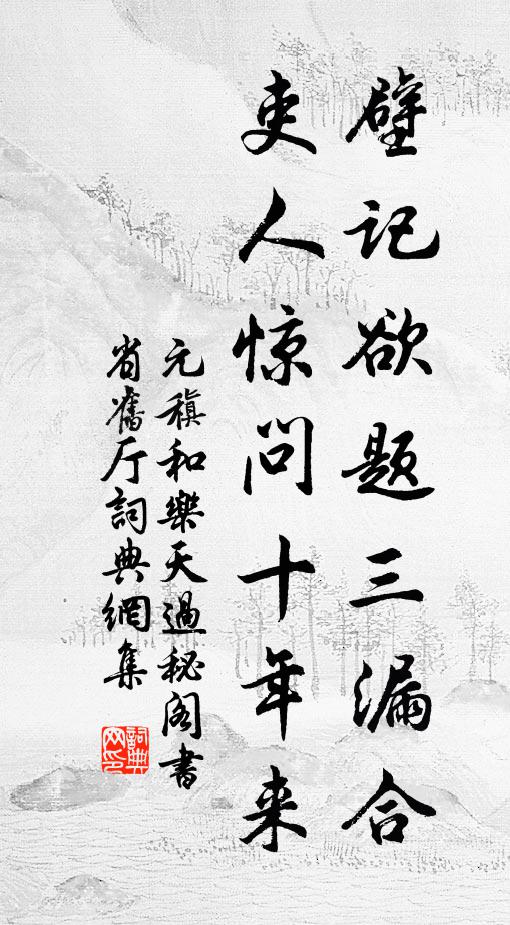 壁记欲题三漏合
吏人惊问十年来
元稹和樂天過秘阁書
省舊厅詞典網集
詞典
网印